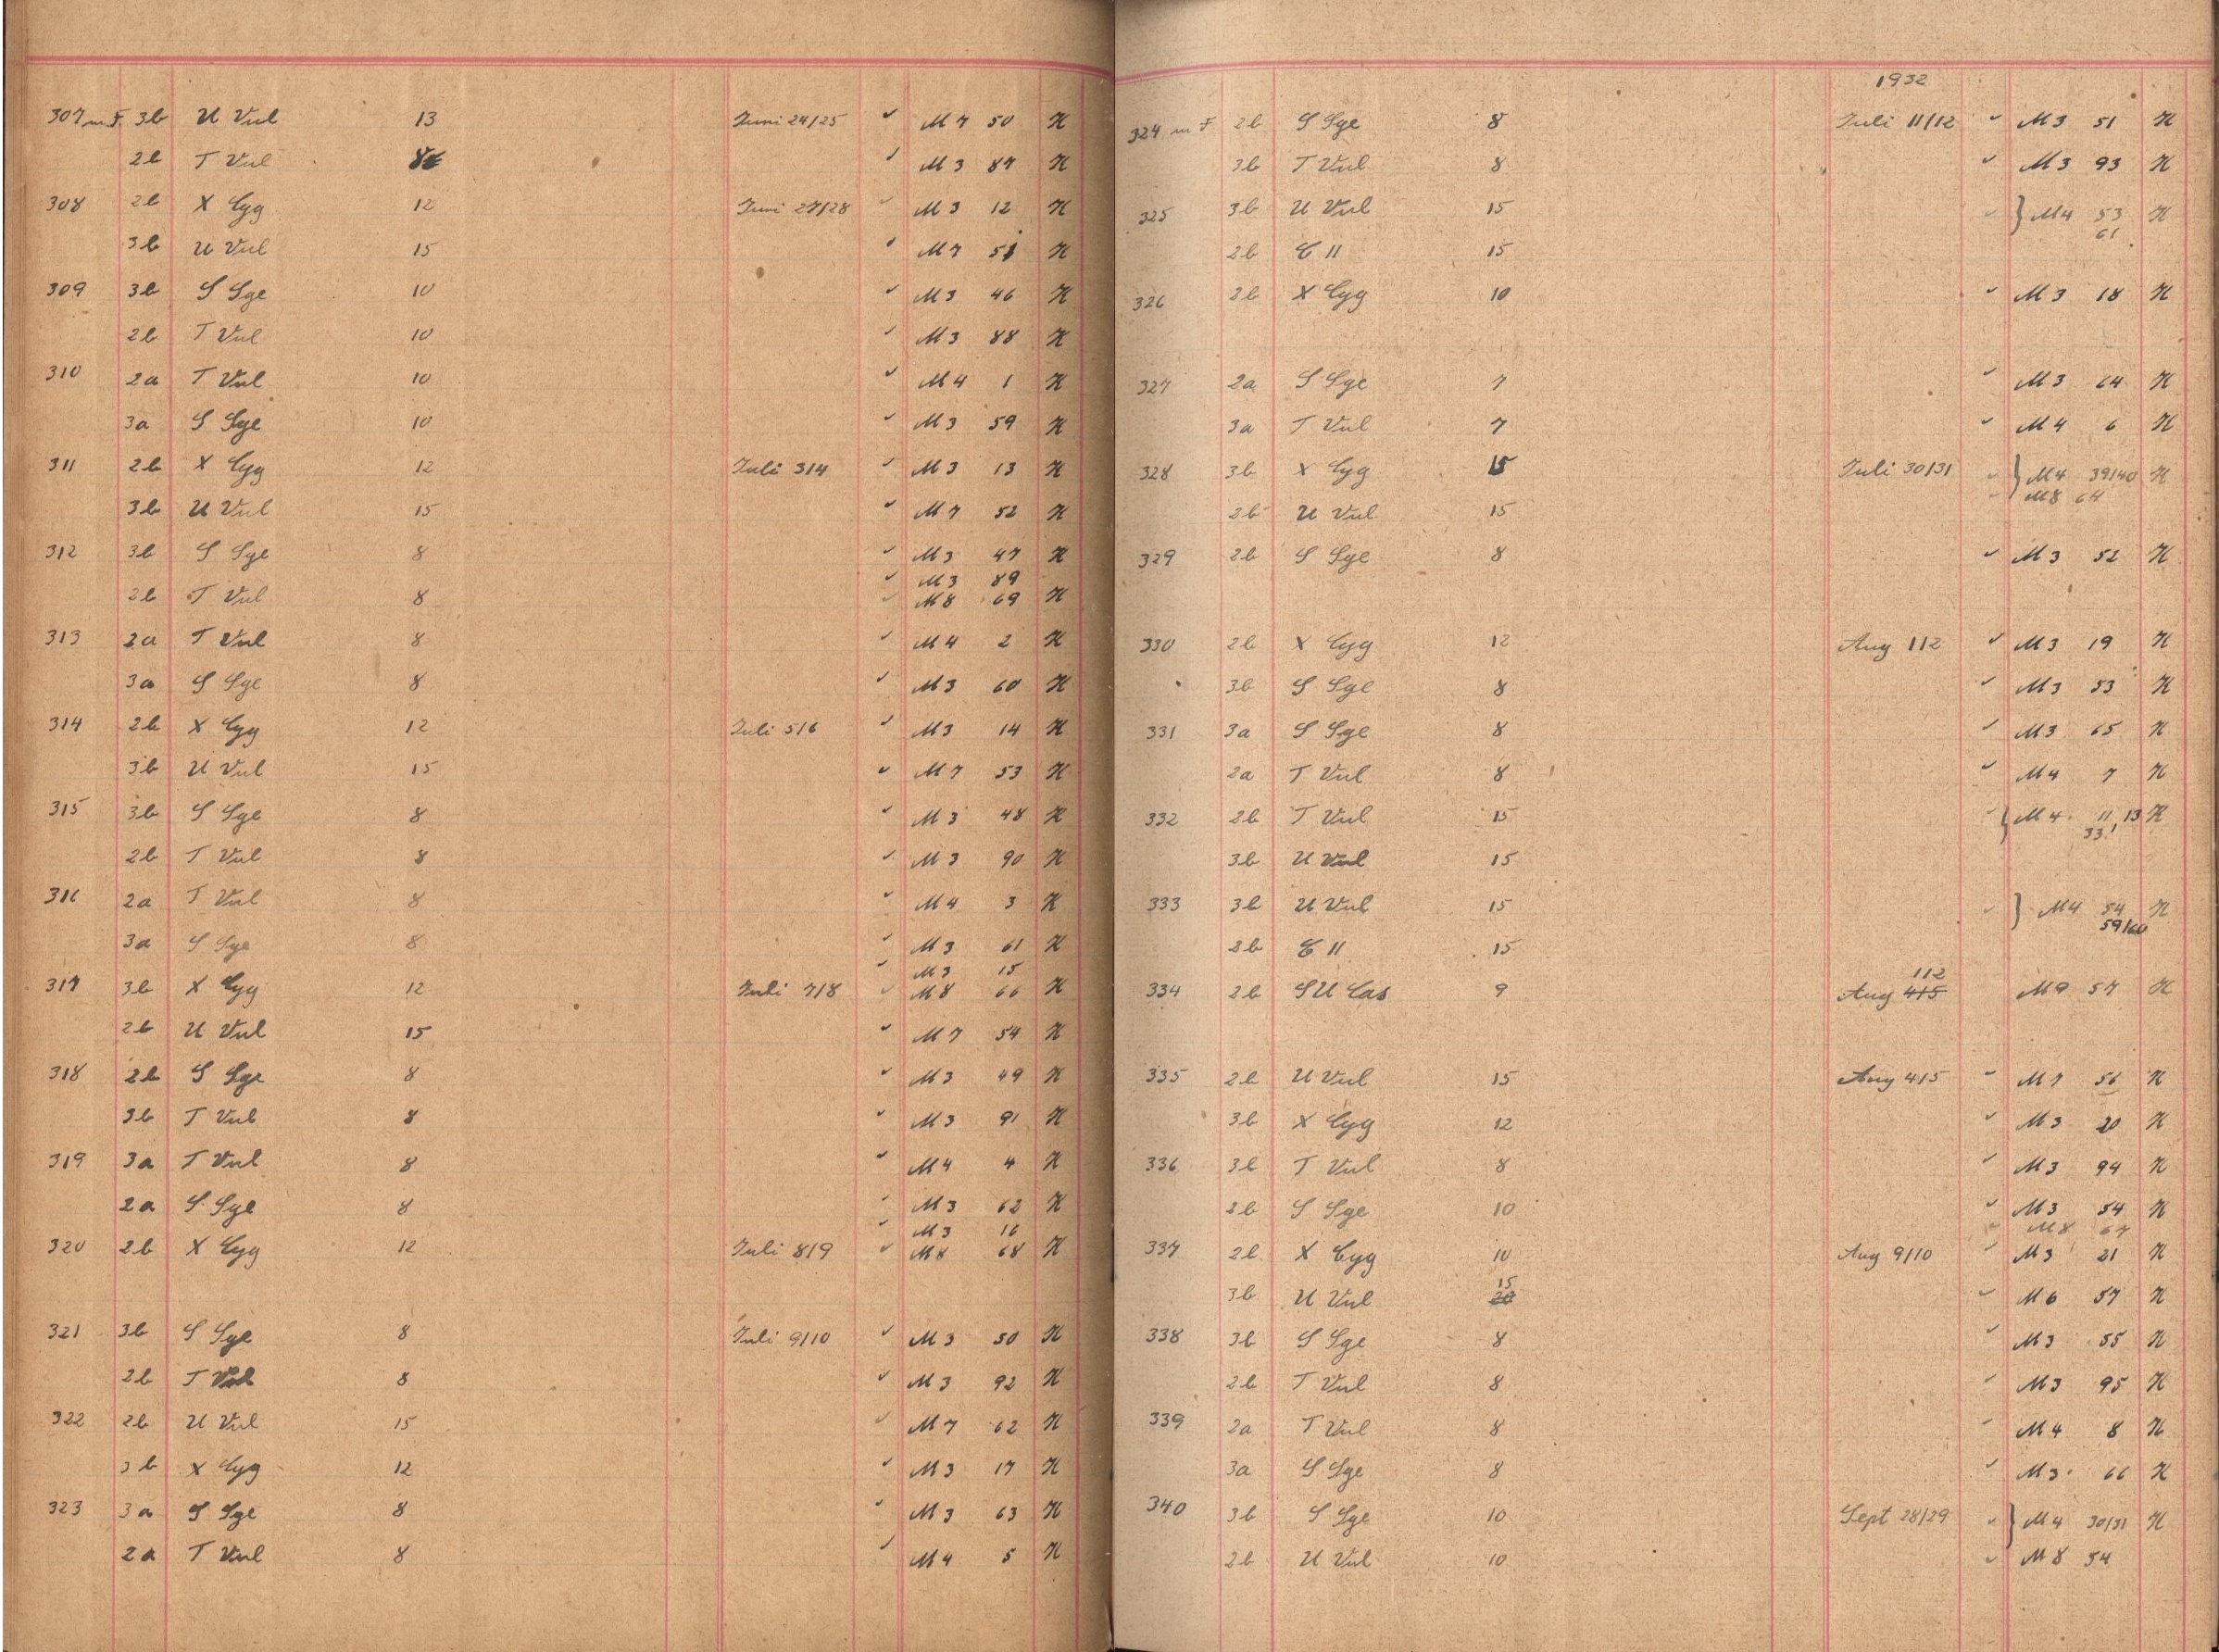 307 m F. 3b U Vul 13 Juni 24/25 ✓ M 7 50 H
2b T Vul 8 ✓ M 3 87 H
308 2b X Cyg 12 Juni 27/28 ✓ M 3 12 H
3b U Vul 15 ✓ M 7 51 H
309 3b S Sge 10 ✓ M 3 46 H
2b T Vul 10 ✓ M 3 88 H
310 2a T Vul 10 ✓ M 4 1 H
3a S Sge 10 ✓ M 3 59 H
311 2b X Cyg 12 Juli 3/4 ✓ M 3 13 H
3b U Vul 15 ✓ M 7 52 H
312 3b S Sge 8 ✓ M 3 47 H
✓ M 3 89
2b T Vul 8 ✓ M 8 69 H
313 2a T Vul 8 ✓ M 4 2 H
3a S Sge 8 ✓ M 3 60 H
314 2b X Cyg 12 Juli 5/6 ✓ M 3 14 H
3b U Vul 15 ✓ M 7 53 H
315 3b S Sge 8 ✓ M 3 48 H
2b T Vul 8 ✓ M 3 90 H
316 2a T Vul 8 ✓ M 4 3 H
3a S Sge 8 ✓ M 3 61 H
✓ M 3 15
317 3b X Cyg 12 Juli 7/8 ✓ M 8 66 H
2b U Vul 15 ✓ M 7 54 H
318 2b S Sge 8 ✓ M 3 49 H
3b T Vul 8 ✓ M 3 91 H
319 3a T Vul 8 ✓ M 4 4 H
2a S Sge 8 ✓ M 3 62 H
✓ M 3 16
320 2b X Cyg 12 Juli 8/9 ✓ M 8 68 H
321 3b S Sge 8 Juli 9/10 ✓ M 3 50 H
2b T Vul 8 ✓ M 3 92 H
322 2b U Vul 15 ✓ M 7 62 H
3b X Cyg 12 ✓ M 3 17 H
323 3a S Sge 8 ✓ M 3 63 H
2a T Vul 8 ✓ M 4 5 H
1932
324 m F 2b S Sge 8 Juli 11/12 ✓ M 3 51 H
3b T Vul 8 ✓ M 3 93 H
325 3b U Vul 15 ✓ } M 4 53 H
61
2b C 11 15
326 2b X Cyg 10 ✓ M 3 18 H
327 2a S Sge 7 ✓ M 3 64 H
3a T Vul 7 ✓ M 4 6 H
328 3b X Cyg 15 Juli 30/31 ✓ } M 4 39/40 H
✓ M 8 64
2b U Vul 15
329 2b S Sge 8 ✓ M 3 52 H
330 2b X Cyg 12 Aug 1/2 ✓ M 3 19 H
3b S Sge 8 ✓ M 3 53 H
331 3a S Sge 8 ✓ M 3 65 H
2a T Vul 8 ✓ M 4 7 H
332 2b T Vul 15 ✓ } M 4 11, 13 H
33,
3b U Vul 15
333 3b U Vul 15 ✓ } M 4 54 H
59/60
2b C 11 15
1/2
334 2b SU Cas 9 Aug 4/5 M 9 57 H
335 2b U Vul 15 Aug 4/5 ✓ M 7 56 H
3b X Cyg 12 ✓ M 3 20 H
336 3b T Vul 8 ✓ M 3 94 H
2b S Sge 10 ✓ M 3 54 H
✓ M 8 67
337 2b X Cyg 10 Aug 9/10 ✓ M 3 21 H
15
3b U Vul 20 ✓ M 6 57 H
338 3b S Sge 8 ✓ M 3 55 H
2b T Vul 8 ✓ M 3 95 H
339 2a T Vul 8 ✓ M 4 8 H
3a S Sge 8 ✓ M 3 66 H
340 3b S Sge 10 Sept 28/29 ✓ } M 4 30/31 H
2b U Vul 10 ✓ M 8 54